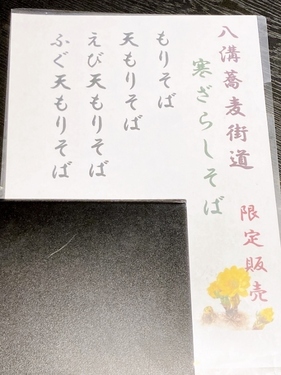 八溝蕎麦街道
寒ざらしそば
限定販売
もりそば
天もりそば
えび天もりそば
ふぐ天もりそば